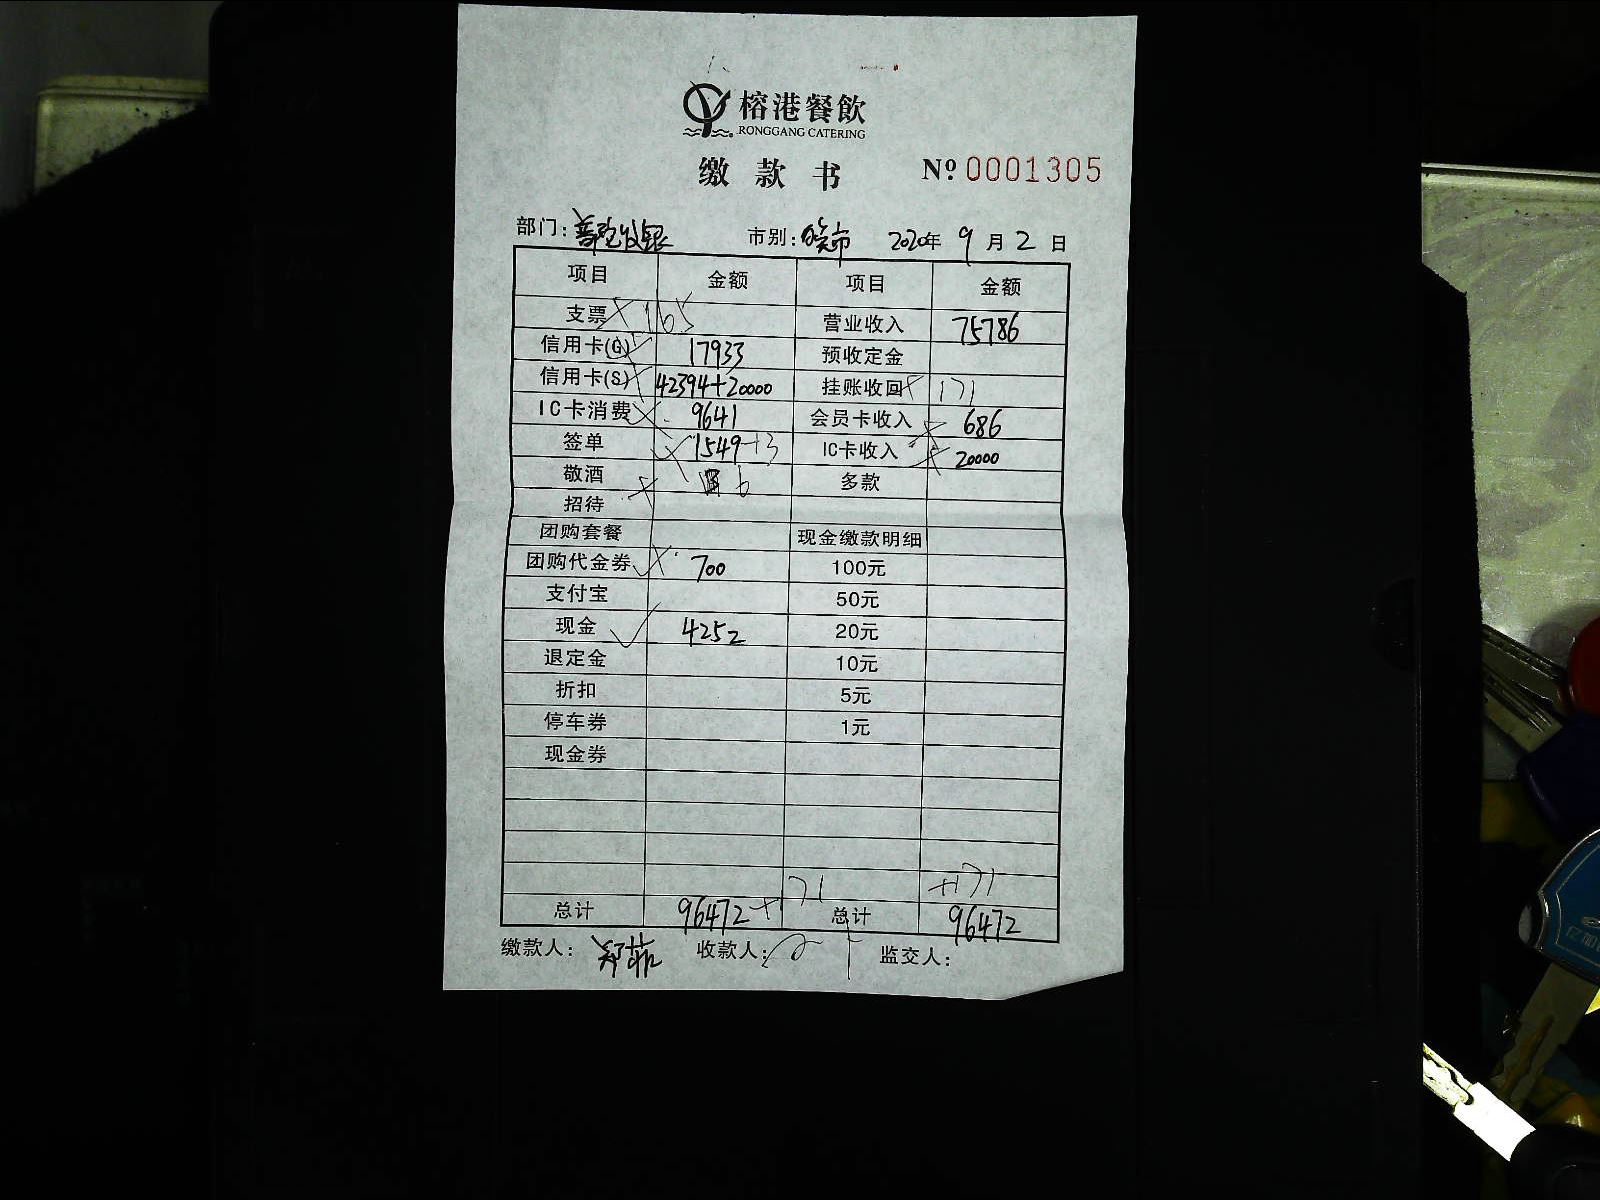 榕港餐飲
RONGGANG CATERING
缴款书 Nº 0001305
部门: 市别: 2020年 9月2日
项目 金额 项目 金额
支票 165 营业收入 75786
信用卡(G) 17933 预收定金
信用卡(S) 42394+20000 挂账收回 171
IC卡消费 9641 会员卡收入 686
签单 1549+3 IC卡收入 20000
敬酒 6 多款
招待
团购套餐 现金缴款明细
团购代金券 700 100元
支付宝 50元
现金 4252 20元
退定金 10元
折扣 5元
停车券 1元
现金券
+171
总计 96472 + 171 总计 96472
缴款人: 收款人: 监交人: